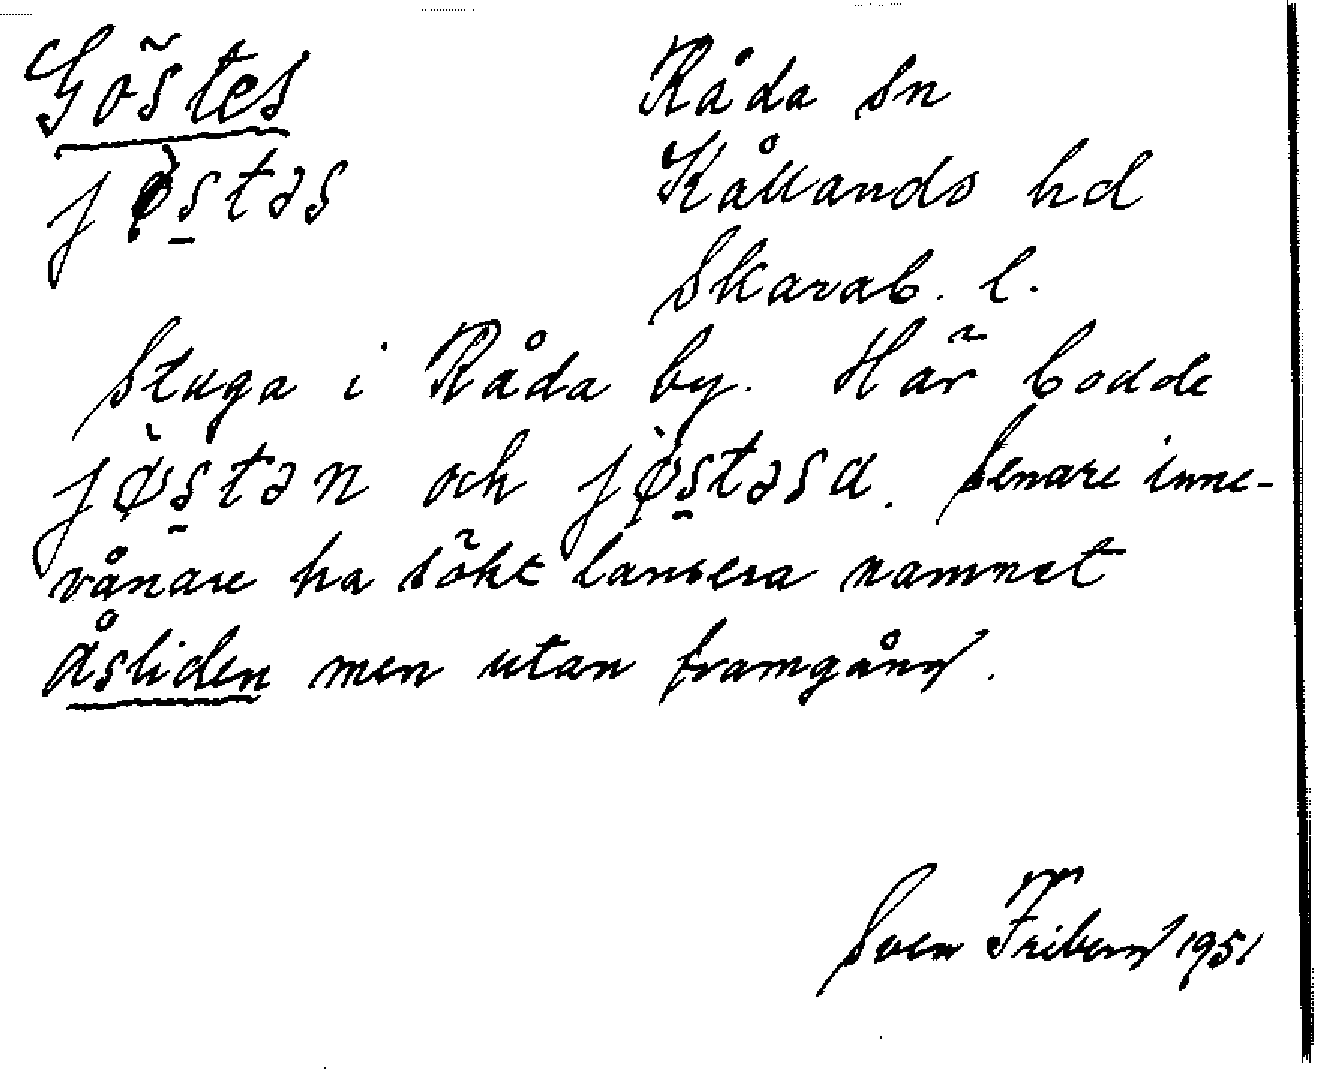 Göstes
Råda sn
jø̀s̠təs
Kållands hd
Skarab. l.
Stuga i Råda by. Här bodde
jø̀s̠tən och jø̀s̠təsa. Senare inne-
vånare ha sökt lansera namnet
Åsliden men utan framgång.
Sven Friberg 1951